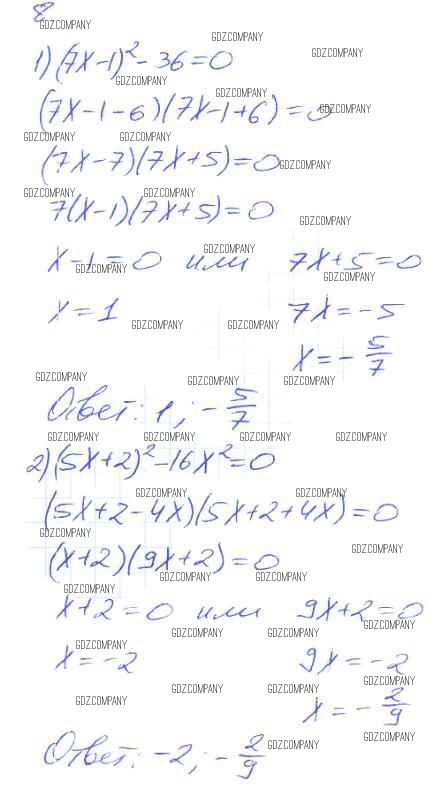 8
GDZCOMPANY
GDZCOMPANY
1) (7x-1)² - 36 = 0
GDZCOMPANY
GDZCOMPANY
GDZCOMPANY
(7x-1-6)(7x-1+6) = 0
GDZCOMPANY
GDZCOMPANY GDZCOMPANY
(7x-7)(7x+5) = 0
GDZCOMPANY
GDZCOMPANY GDZCOMPANY
7(x-1)(7x+5) = 0
GDZCOMPANY
GDZCOMPANY
x-1 = 0 или 7x+5 = 0
GDZCOMPANY GDZCOMPANY
x = 1 7x = -5
GDZCOMPANY GDZCOMPANY
x = - 5/7
GDZCOMPANY GDZCOMPANY GDZCOMPANY
Ответ: 1; - 5/7
GDZCOMPANY GDZCOMPANY GDZCOMPANY GDZCOMPANY
2) (5x+2)² - 16x² = 0
GDZCOMPANY GDZCOMPANY
(5x+2-4x)(5x+2+4x) = 0
GDZCOMPANY GDZCOMPANY
(x+2)(9x+2) = 0
GDZCOMPANY GDZCOMPANY
x+2 = 0 или 9x+2 = 0
GDZCOMPANY
GDZCOMPANY GDZCOMPANY
GDZCOMPANY
x = -2 9x = -2
GDZCOMPANY
GDZCOMPANY GDZCOMPANY
GDZCOMPANY
x = - 2/9
GDZCOMPANY
GDZCOMPANY
Ответ: -2; - 2/9